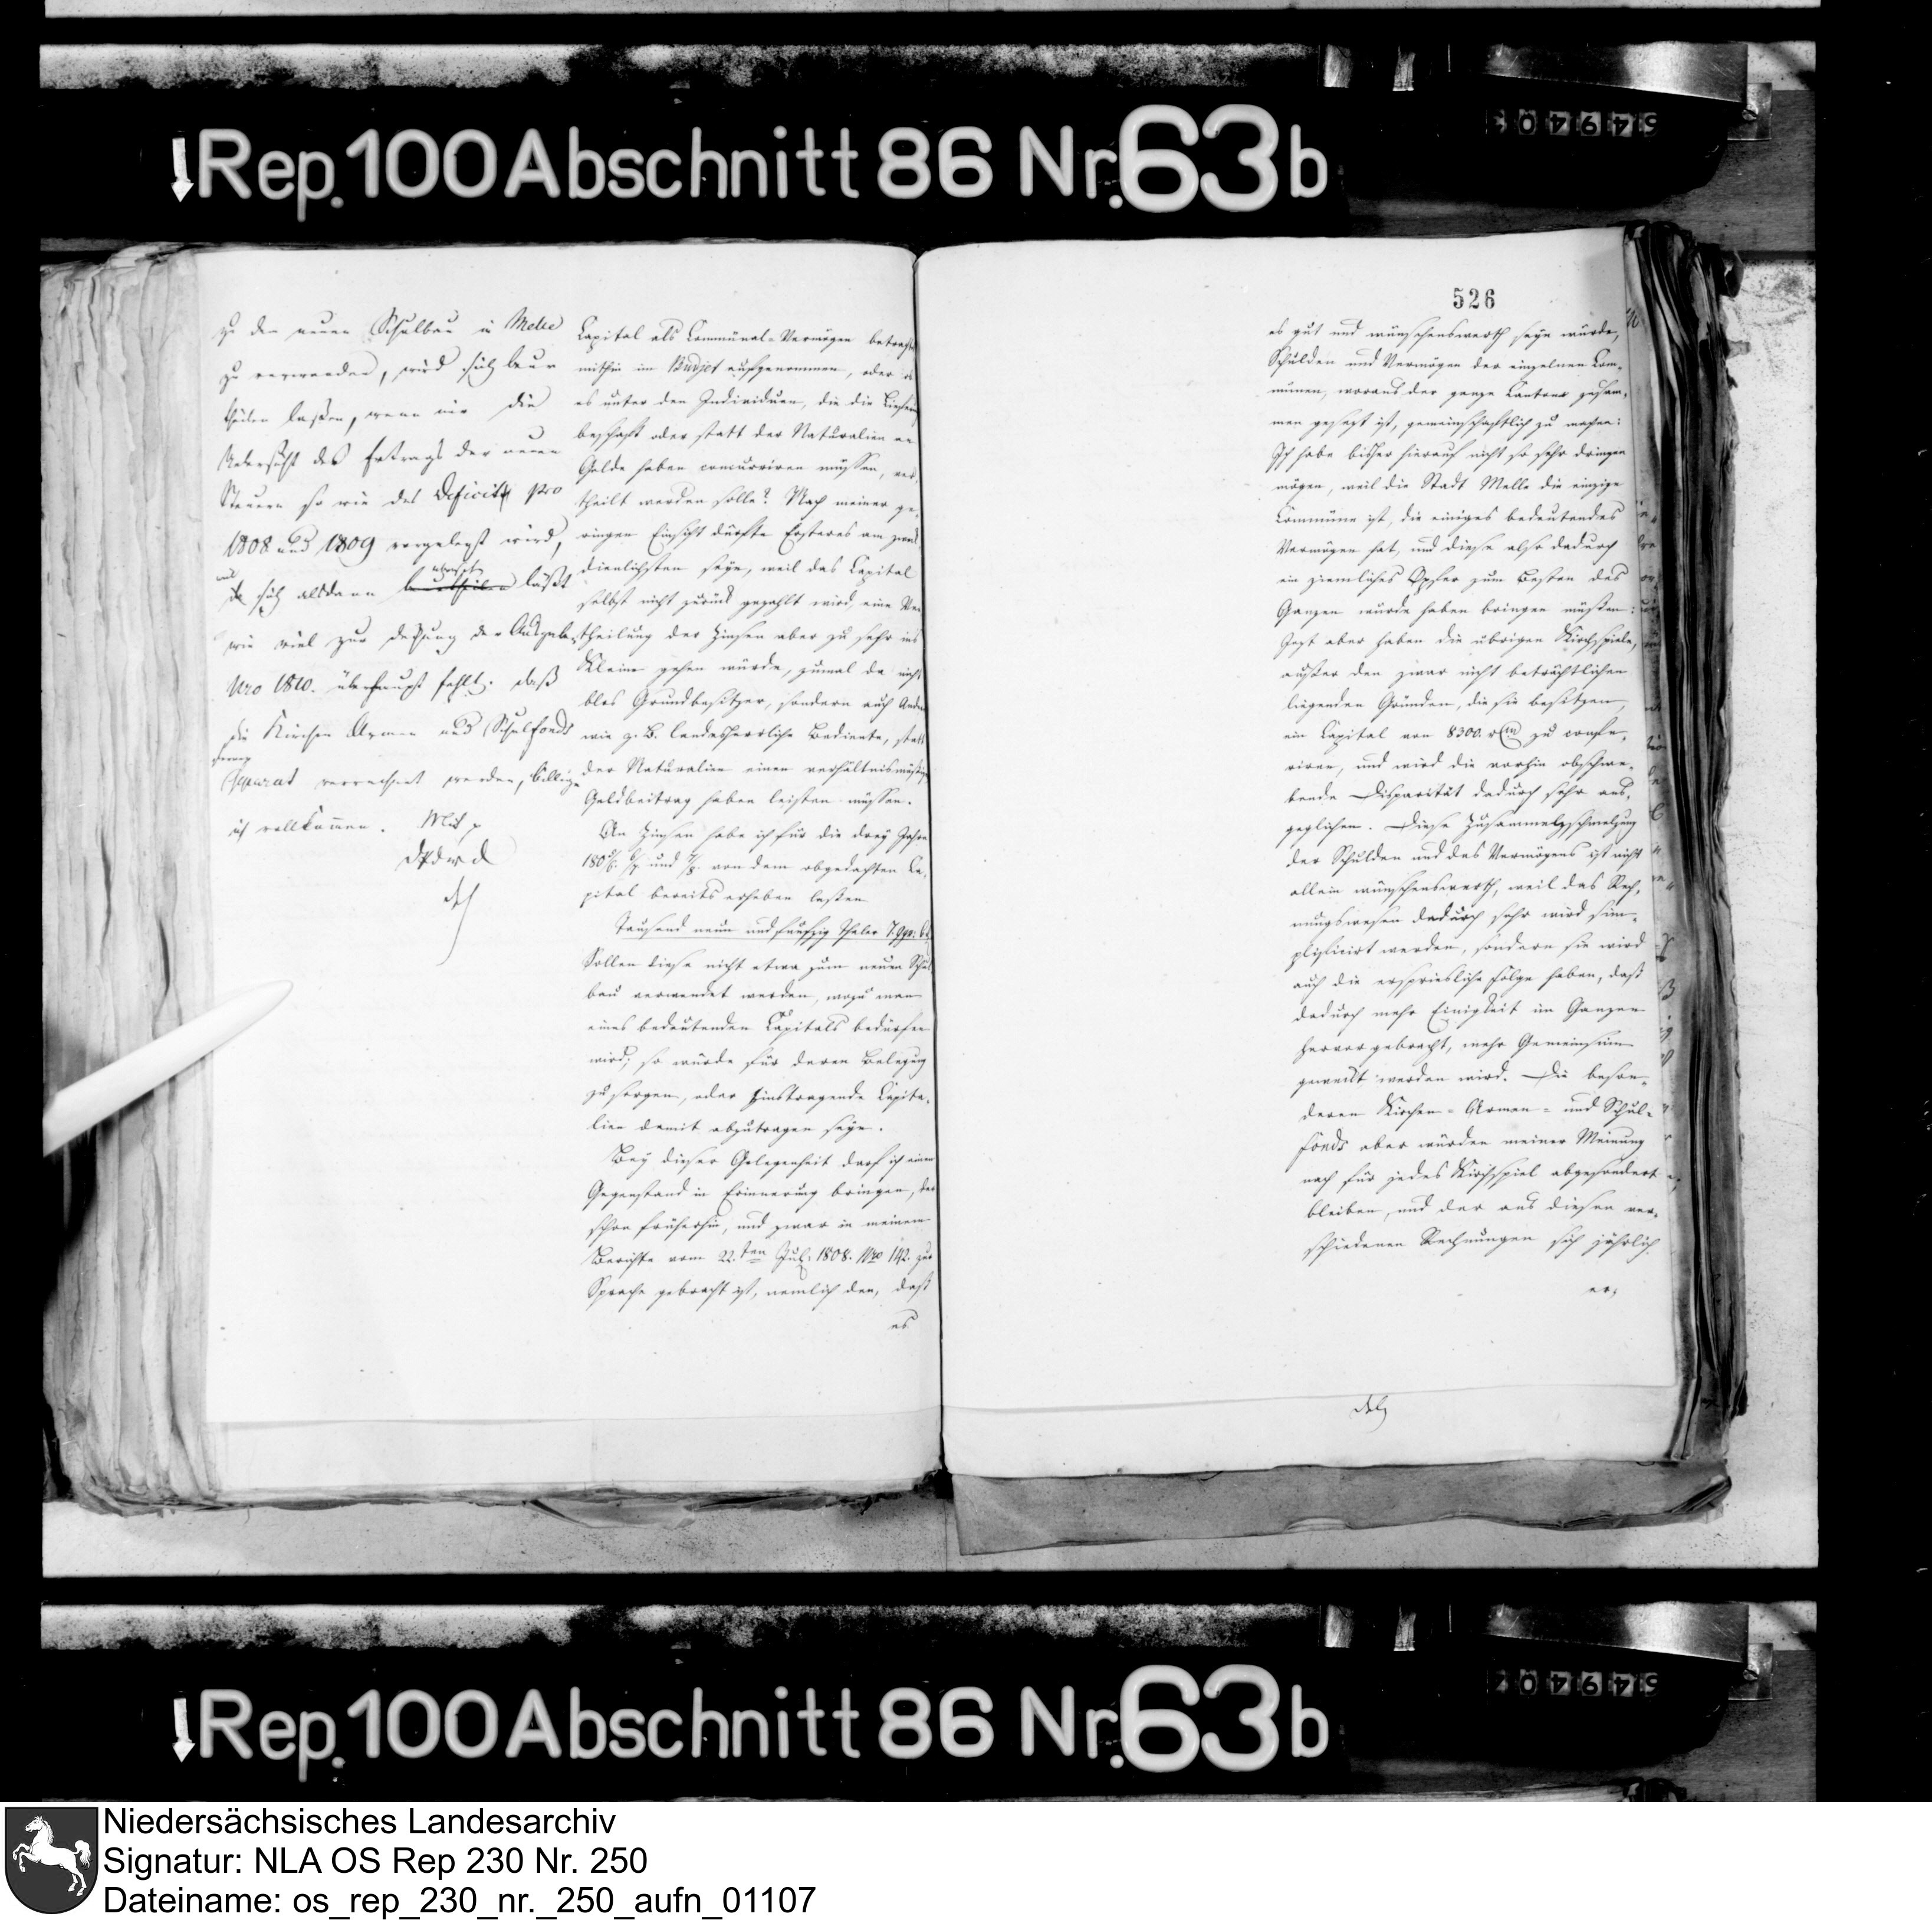 Rep. 100 Abschnitt 86 Nr. 63 b
zu den neuen Schulbau in Melle
zu verwenden, wird sich beur
theilen laßen, wenn mir die
Uebersicht des Ertrags der neuen
Steuern so wie des Deficits pro
1808 und 1809 vorgelegt wird,
sich alsdann läßt
wie viel zur Deckung der Ausgabe
pro 1810. überhaupt fehlt. daß
die Kirchen Armen und Schulfonds
separat verrechnet werden, billige
ich vollkommen.
Capital als Communal-Vermögen betracht
mithin im Budjet aufgenommen, oder ob
es unter den Individuen, die die Liefer
beschaft oder statt der Naturalien an
Gelde haben concurriren müssen, ver,
theilt werden solle? Nach meiner ge,
ringen Einsicht dürfte Ersteres am zweck
dienlichsten seyn, weil das Capital
selbst nicht zurück gezahlt wird, eine Ver
theilung der Zinsen aber zu sehr ins
Kleine gehen würde, zumal da nicht
blos Grundbesitzer, sondern auch Andre
wie z. B. landesherrliche Bediente, statt
der Naturalien einen verhältnismäßigen
Geldbeitrag haben leisten müssen.
An Zinsen habe ich für die drey Jahre
180 5/6. 6/7 und 7/8. von dem obgedachten Ca,
pital bereits erheben laßen
Tausend neun und funfzig Thaler 7. ggr. 6
Sollen diese nicht etwa zum neuen Schul
bau verwendet werden, wozu man
eines bedeutenden Capitals bedürfen
wird; so würde für deren Belegung
zu sorgen, oder zinstragende Capita,
lien damit abzutragen seyn.
Bey dieser Gelegenheit darf ich einen
Gegenstand in Erinnerung bringen, der
schon früherhin, und zwar in meinem
Berichte vom 22.ten Jul. 1808. Nro 142. zur
Sprache gebracht ist, nemlich den, daß
es
526
es gut und wünschenswerth seyn würde,
Schulden und Vermögen der einzelnen Com,
munen, woraus der ganze Canton zusam,
men gesetzt ist, gemeinschaftlich zu machen:
Ich habe bisher hierauf nicht so sehr dringen
mögen, weil die Stadt Melle die einzige
Commüne ist, die einiges bedeutendes
Vermögen hat, und diese also dadurch
ein ziemliches Opfer zum Besten des
Ganzen würde haben bringen müßen:
Jezt aber haben die übrigen Kirchspiele,
außer den zwar nicht beträchtlichen
liegenden Gründen, die sie besitzen,
ein Capital von 8300. zu confe,
riren, und wird die vorhin obschwe,
bende Disparität dadurch sehr aus,
geglichen. Diese Zusammenschmelzung
der Schulden und des Vermögens ist nicht
allein wünschenswerth, weil das Rech,
nungswesen dadurch sehr wird sim,
plificirt werden, sondern sie wird
auch die erspriesliche Folge haben, daß
dadurch mehr Einigkeit im Ganzen
hervorgebracht, mehr Gemeinsinn
geweckt werden wird. Die beson,
deren Kirchen- Armen- und Schul-
fonds aber würden meiner Meinung
nach für jedes Kirchspiel abgesondert
bleiben, und der aus diesen ver,
schiedenen Rechnungen sich jährlich
er,
Rep. 100 Abschnitt 86 Nr. 63 b
Niedersächsisches Landesarchiv
Signatur: NLA OS Rep 230 Nr. 250
Dateiname: os_rep_230_nr._250_aufn_01107